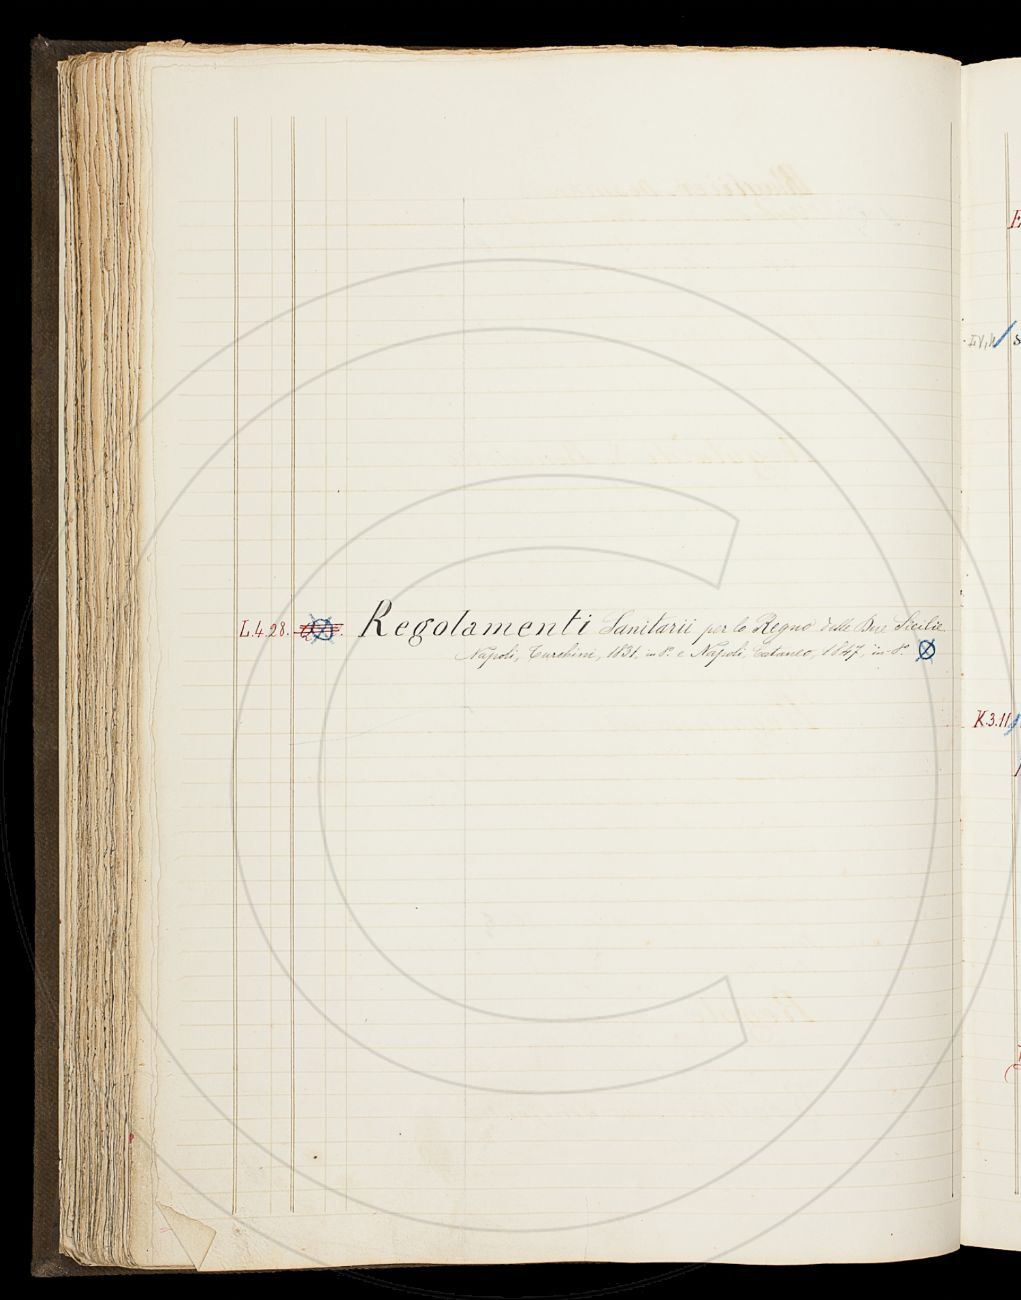 L.4.28. Regolamenti Sanitarii per lo Regno delle Due Sicilie
Napoli, Turchini, 1831, in 8°. e Napoli, Cataneo, 1847, in 8°.
K.3.11